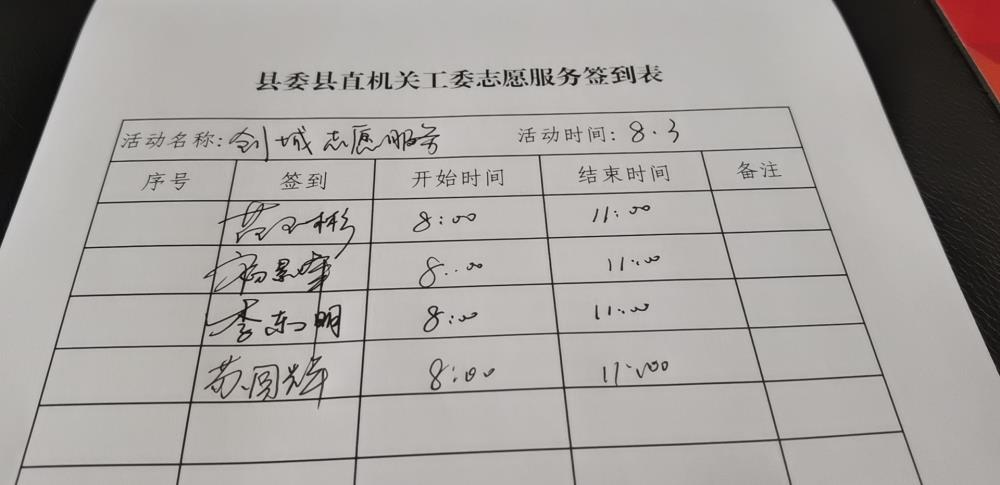 县委县直机关工委志愿服务签到表
活动名称:创城志愿服务 活动时间:8.3
序号 签到 开始时间 结束时间 备注
8:00 11:00
8:00 11:00
李东明 8:00 11:00
苏圆辉 8:00 11:00